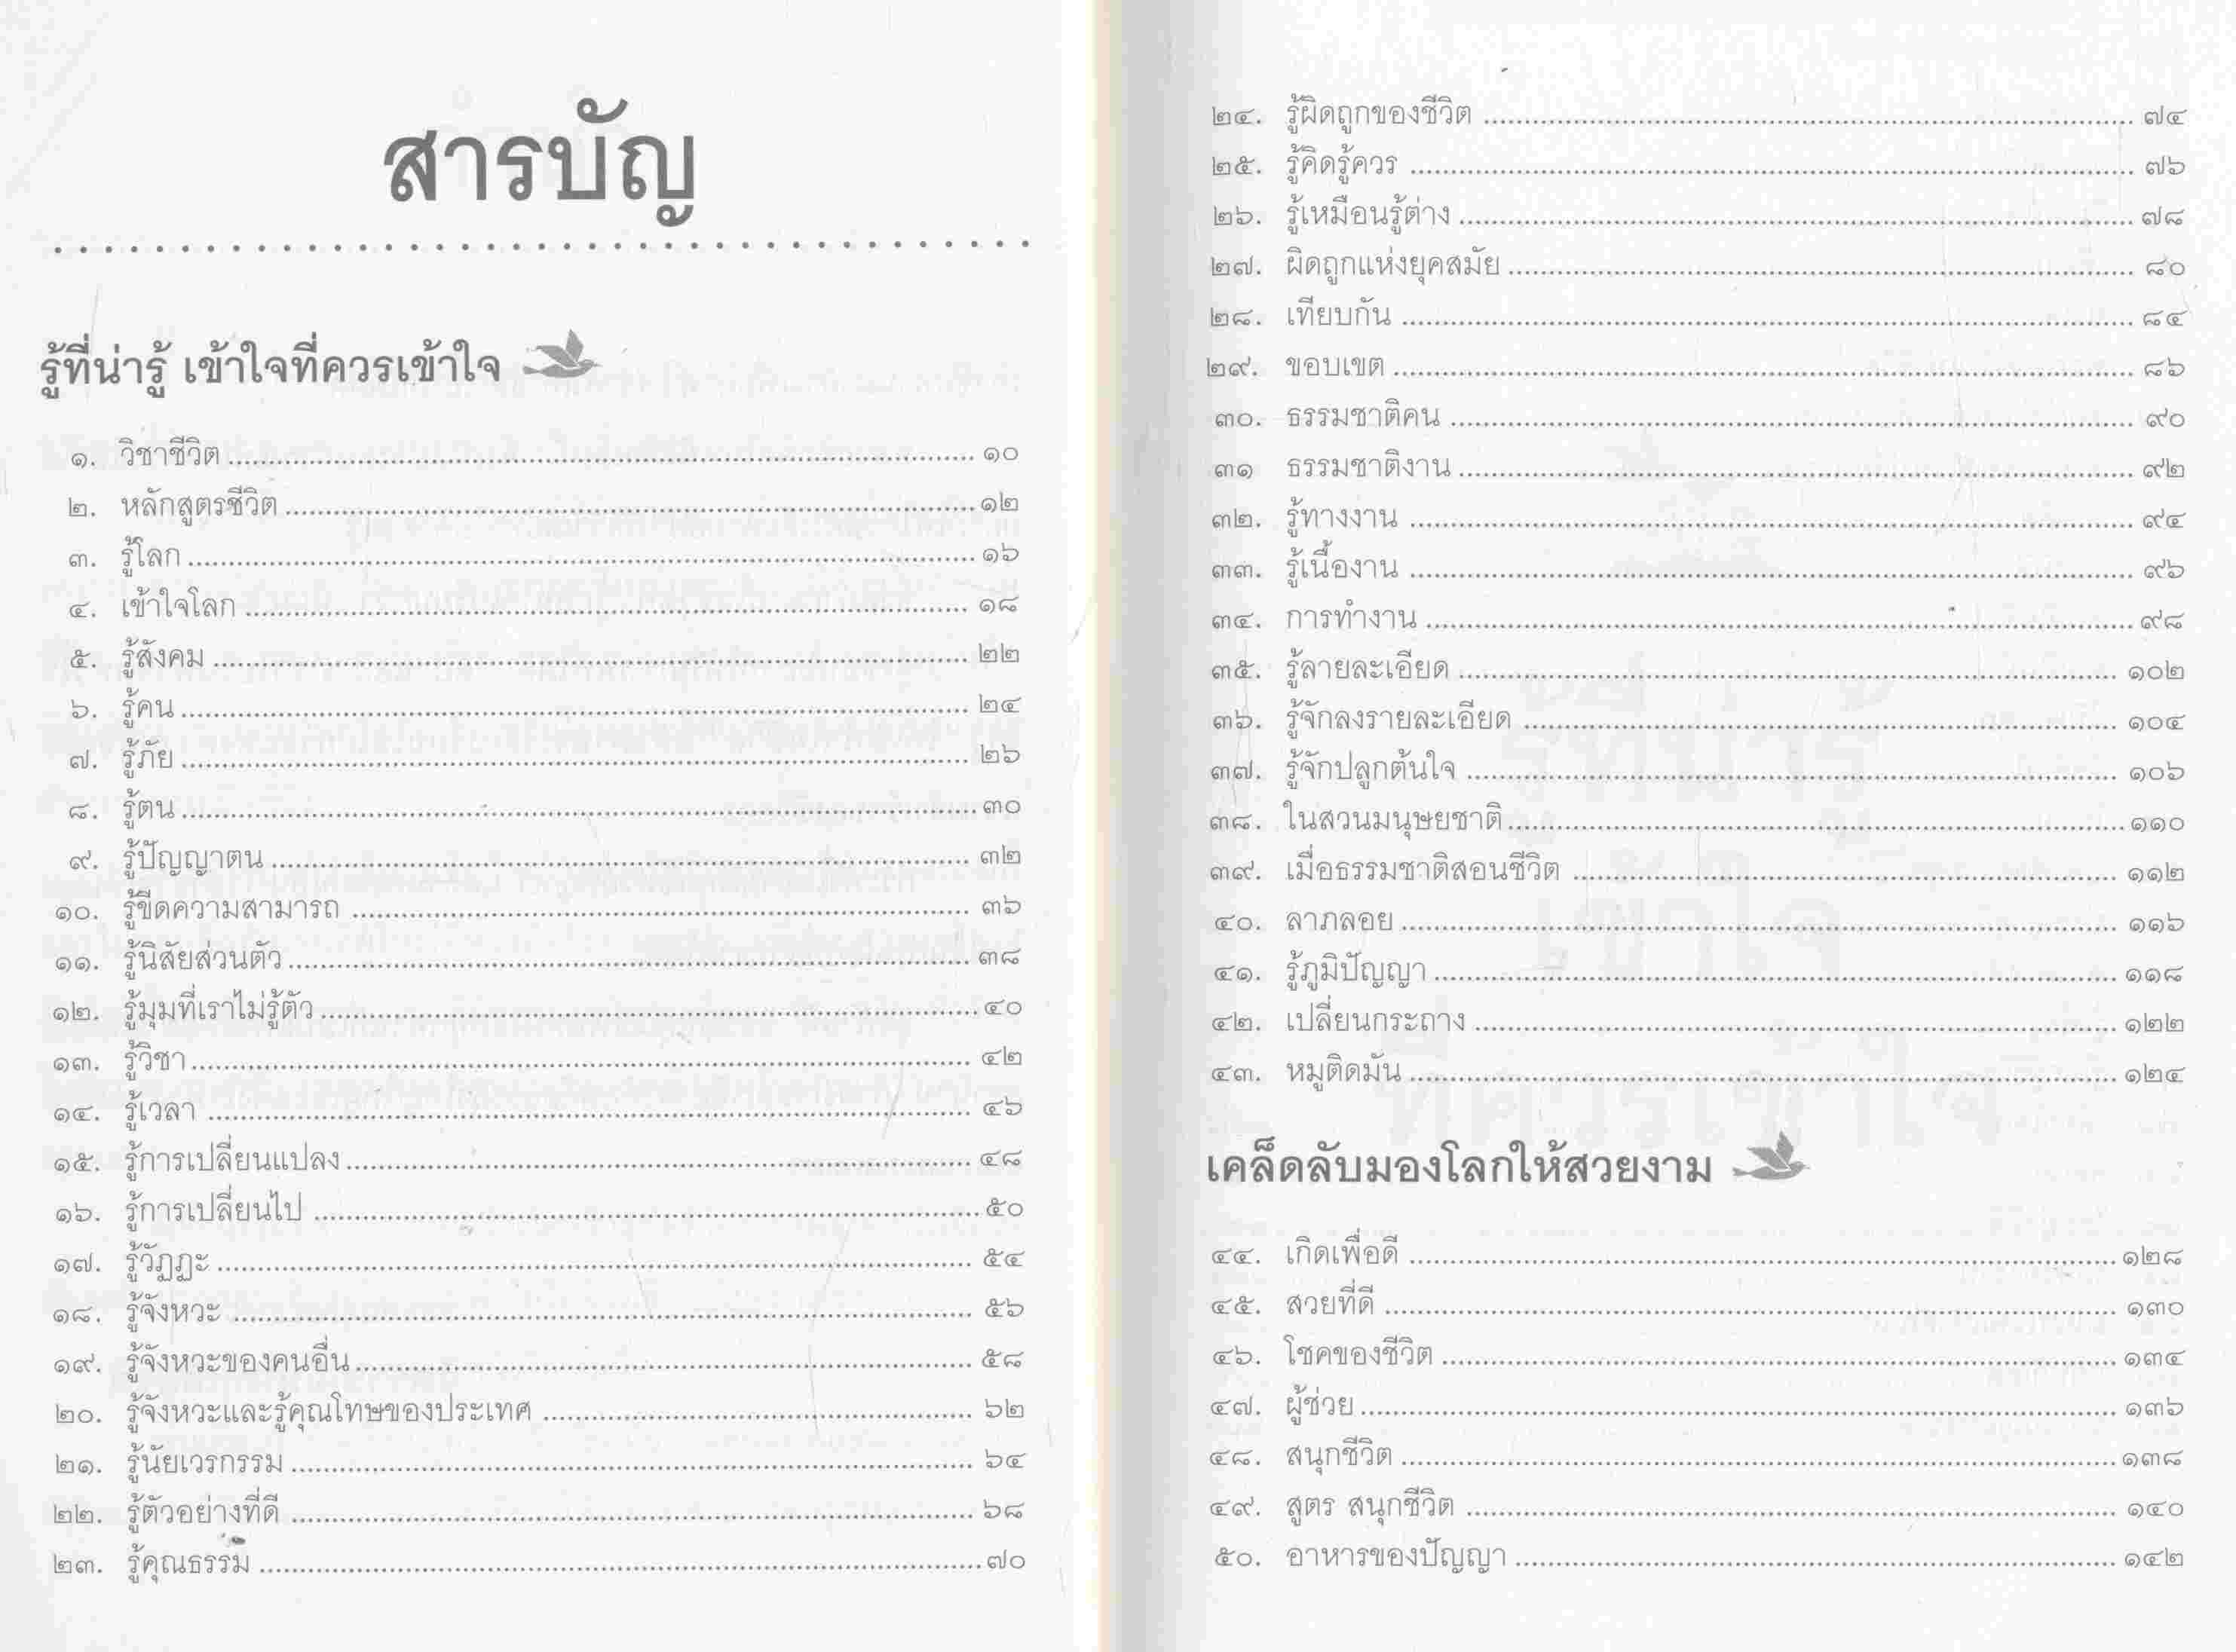 สารบัญ
รู้ที่น่ารู้ เข้าใจที่ควรเข้าใจ
๑. วิชาชีวิต ๑๐
๒. หลักสูตรชีวิต ๑๒
๓. รู้โลก ๑๖
๔. เข้าใจโลก ๑๘
๕. รู้สังคม ๒๒
๖. รู้คน ๒๔
๗. รู้ภัย ๒๖
๘. รู้ตน ๓๐
๙. รู้ปัญญาตน ๓๒
๑๐. รู้ขีดความสามารถ ๓๖
๑๑. รู้นิสัยส่วนตัว ๓๘
๑๒. รู้มุมที่เราไม่รู้ตัว ๔๐
๑๓. รู้วิชา ๔๒
๑๔. รู้เวลา ๔๖
๑๕. รู้การเปลี่ยนแปลง ๔๘
๑๖. รู้การเปลี่ยนไป ๕๐
๑๗. รู้วัฏฏะ ๕๔
๑๘. รู้จังหวะ ๕๖
๑๙. รู้จังหวะของคนอื่น ๕๘
๒๐. รู้จังหวะและรู้คุณโทษของประเทศ ๖๒
๒๑. รู้นัยเวรกรรม ๖๔
๒๒. รู้ตัวอย่างที่ดี ๖๘
๒๓. รู้คุณธรรม ๗๐
๒๔. รู้ผิดถูกของชีวิต ๗๔
๒๕. รู้คิดรู้ควร ๗๖
๒๖. รู้เหมือนรู้ต่าง ๗๘
๒๗. ผิดถูกแห่งยุคสมัย ๘๐
๒๘. เทียบกัน ๘๔
๒๙. ขอบเขต ๘๖
๓๐. ธรรมชาติคน ๙๐
๓๑ ธรรมชาติงาน ๙๒
๓๒. รู้ทางงาน ๙๔
๓๓. รู้เนื้องาน ๙๖
๓๔. การทำงาน ๙๘
๓๕. รู้ลายละเอียด ๑๐๒
๓๖. รู้จักลงรายละเอียด ๑๐๔
๓๗. รู้จักปลูกต้นใจ ๑๐๖
๓๘. ในสวนมนุษยชาติ ๑๑๐
๓๙. เมื่อธรรมชาติสอนชีวิต ๑๑๒
๔๐. ลาภลอย ๑๑๖
๔๑. รู้ภูมิปัญญา ๑๑๘
๔๒. เปลี่ยนกระถาง ๑๒๒
๔๓. หมูติดมัน ๑๒๔
เคล็ดลับมองโลกให้สวยงาม
๔๔. เกิดเพื่อดี ๑๒๘
๔๕. สวยที่ดี ๑๓๐
๔๖. โชคของชีวิต ๑๓๔
๔๗. ผู้ช่วย ๑๓๖
๔๘. สนุกชีวิต ๑๓๘
๔๙. สูตร สนุกชีวิต ๑๔๐
๕๐. อาหารของปัญญา ๑๔๒